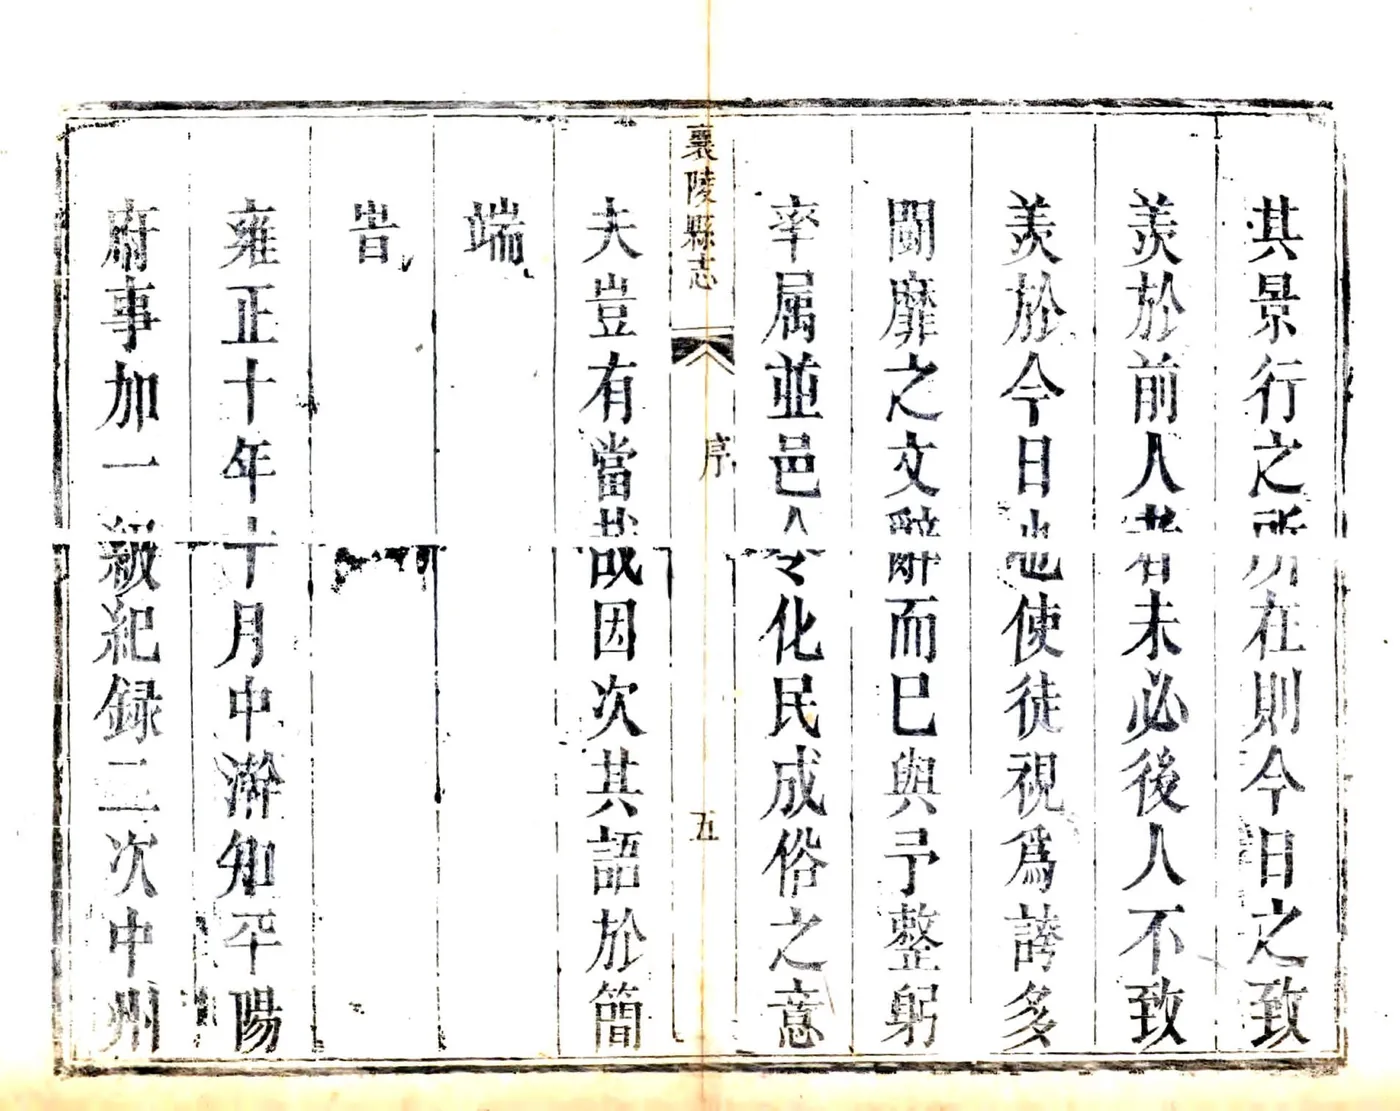 其景行之所在則今日之致
羨於前人者未必後人不致
羨於今日也使徒視爲誇多
鬬靡之文辭而巳與予整躬
率属並邑令化民成俗之意
襄陵縣志
序
五
夫豈有當哉因次其語於簡
端
旹
雍正十年十月中澣知平陽
府事加一級紀録二次中州